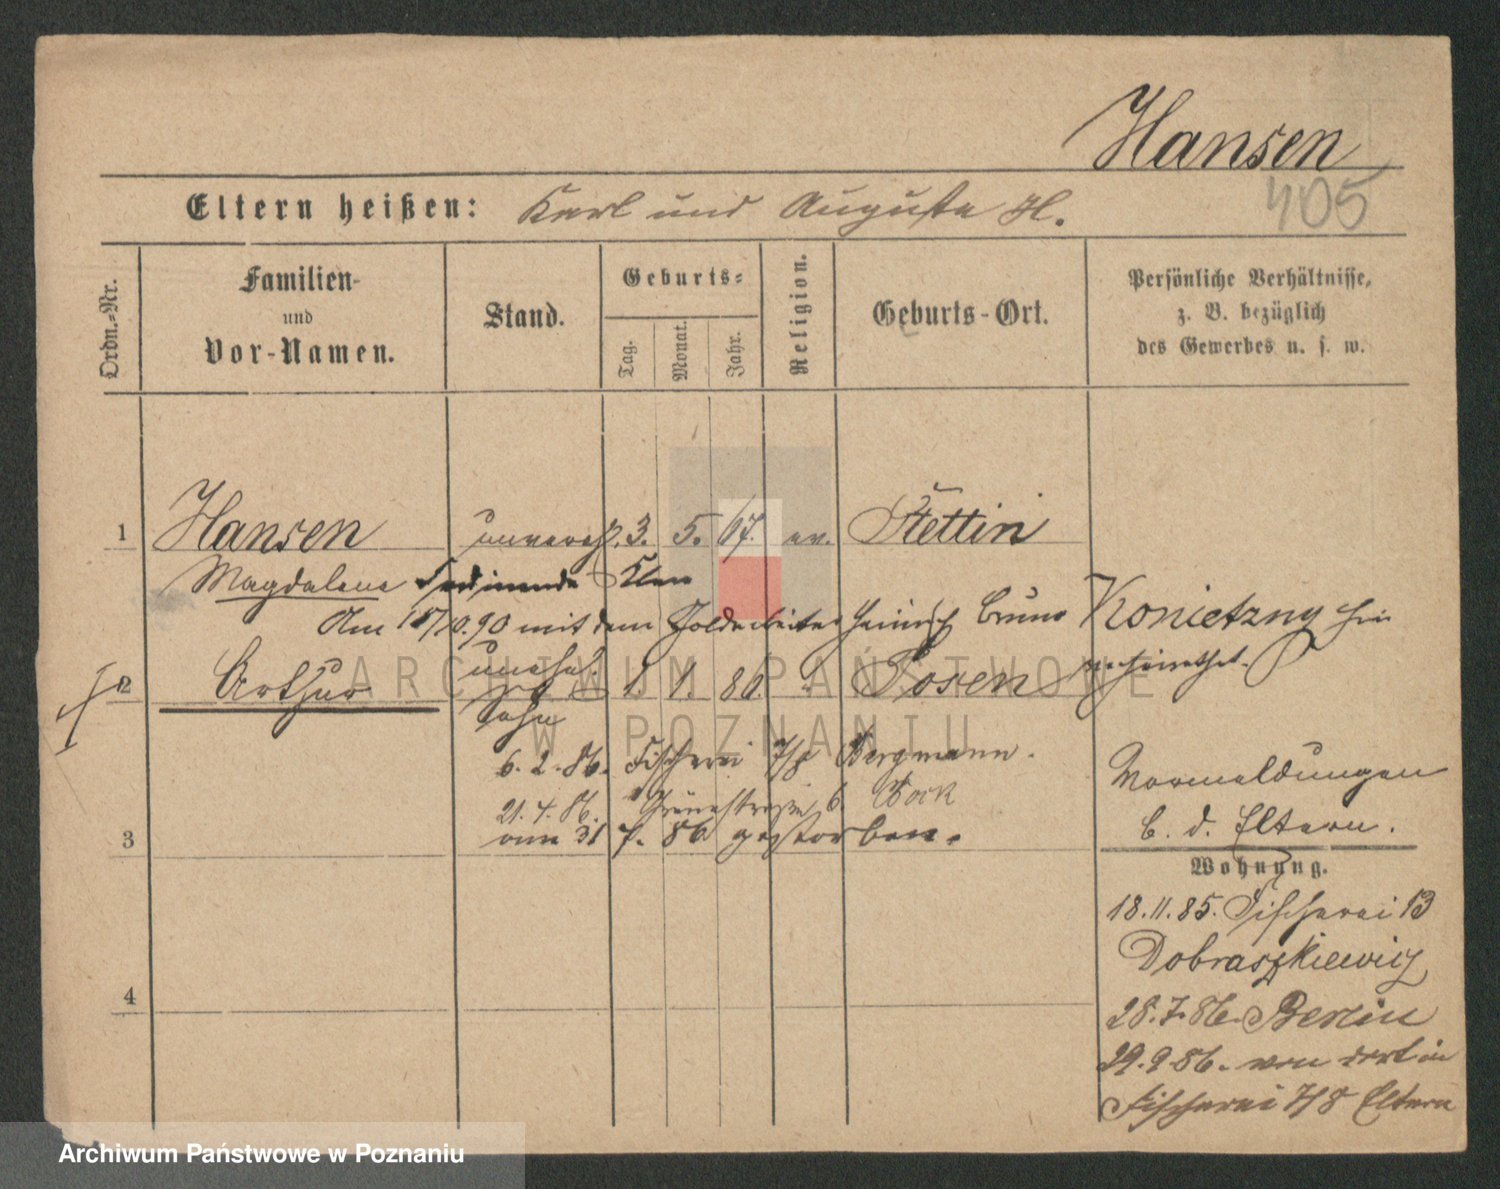 Hansen
405
Eltern heißen: Karl und Auguste H.
Ordn.-Nr.
Familien-
und
Vor-Namen.
Stand.
Geburts-
Tag.
Monat.
Jahr.
Religion.
Geburts-Ort.
Persönliche Verhältnisse,
z. B. bezüglich
des Gewerbes u. s. w.
1 Hansen unvereh. 3. 5. 67. ev. Stettin
Magdalena Ferdinande
Am 18/10.90 mit dem Goldarbeiter Heinrich Bruno Konietzny hier
verheirathet.
2 Arthur unehel. 1. 1. 86. Posen
Sohn
6. 2. 86. Fischerei 7/8 Bergmann.
21. 4. 86. Grünestraße 6. Bock
am 31 7. 86 gestorben.
3
4
Vormeldungen
b. d. Eltern.
Wohnung.
18.11.85. Fischerei 13
Dobraszkiewicz
28.7.86. Berlin
29.9.86. von dort in
Fischerei 7/8 Eltern
ARCHIWUM PAŃSTWOWE
W POZNANIU
Archiwum Państwowe w Poznaniu